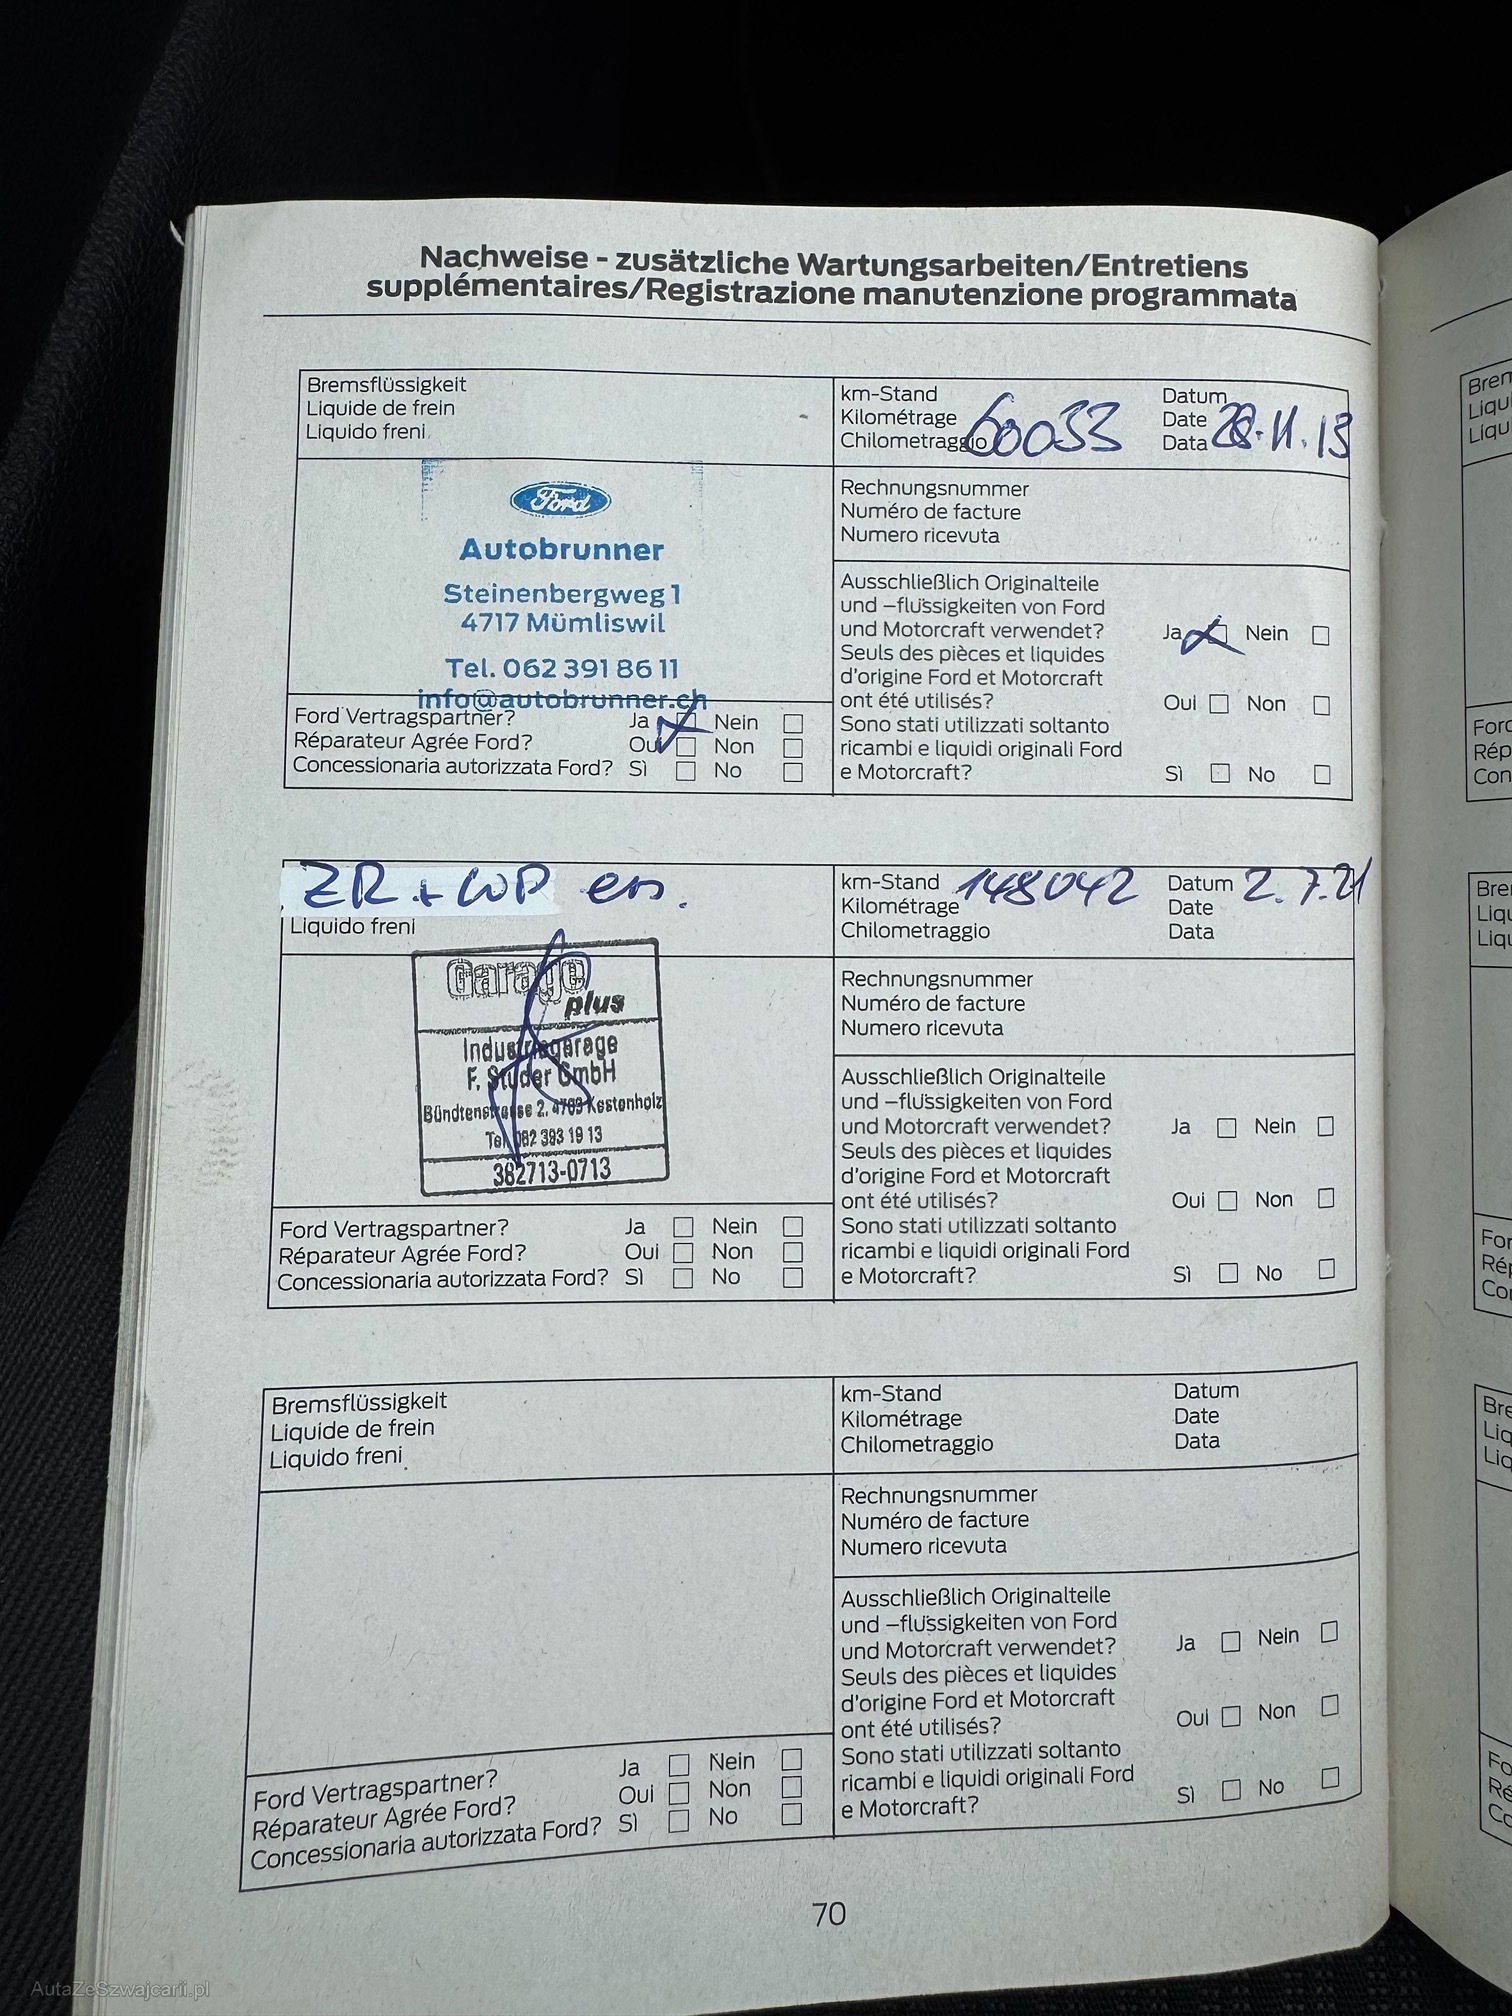 Nachweise - zusätzliche Wartungsarbeiten/Entretiens
supplémentaires/Registrazione manutenzione programmata
Bremsflüssigkeit
Liquide de frein
Liquido freni
km-Stand
Kilométrage
Chilometraggio
60033
Datum
Date
Data
28.11.13
Ford
Autobrunner
Steinenbergweg 1
4717 Mümliswil
Tel. 062 391 86 11
info@autobrunner.ch
Rechnungsnummer
Numéro de facture
Numero ricevuta
Ford Vertragspartner? Ja Nein
Réparateur Agrée Ford? Oui Non
Concessionaria autorizzata Ford? Sì No
Ausschließlich Originalteile
und –flüssigkeiten von Ford
und Motorcraft verwendet? Ja Nein
Seuls des pièces et liquides
d'origine Ford et Motorcraft
ont été utilisés? Oui Non
Sono stati utilizzati soltanto
ricambi e liquidi originali Ford
e Motorcraft? Sì No
ZR + WP ers.
Liquido freni
km-Stand
Kilométrage
Chilometraggio
148042
Datum
Date
Data
2.7.21
Garage
plus
Industriegarage
F. Studer GmbH
Bündtenstrasse 2, 4703 Kestenholz
Tel. 062 393 19 13
382713-0713
Rechnungsnummer
Numéro de facture
Numero ricevuta
Ford Vertragspartner? Ja Nein
Réparateur Agrée Ford? Oui Non
Concessionaria autorizzata Ford? Sì No
Ausschließlich Originalteile
und –flüssigkeiten von Ford
und Motorcraft verwendet? Ja Nein
Seuls des pièces et liquides
d'origine Ford et Motorcraft
ont été utilisés? Oui Non
Sono stati utilizzati soltanto
ricambi e liquidi originali Ford
e Motorcraft? Sì No
Bremsflüssigkeit
Liquide de frein
Liquido freni
km-Stand
Kilométrage
Chilometraggio
Datum
Date
Data
Rechnungsnummer
Numéro de facture
Numero ricevuta
Ford Vertragspartner? Ja Nein
Réparateur Agrée Ford? Oui Non
Concessionaria autorizzata Ford? Sì No
Ausschließlich Originalteile
und –flüssigkeiten von Ford
und Motorcraft verwendet? Ja Nein
Seuls des pièces et liquides
d'origine Ford et Motorcraft
ont été utilisés? Oui Non
Sono stati utilizzati soltanto
ricambi e liquidi originali Ford
e Motorcraft? Sì No
70
AutaZeSzwajcarii.pl